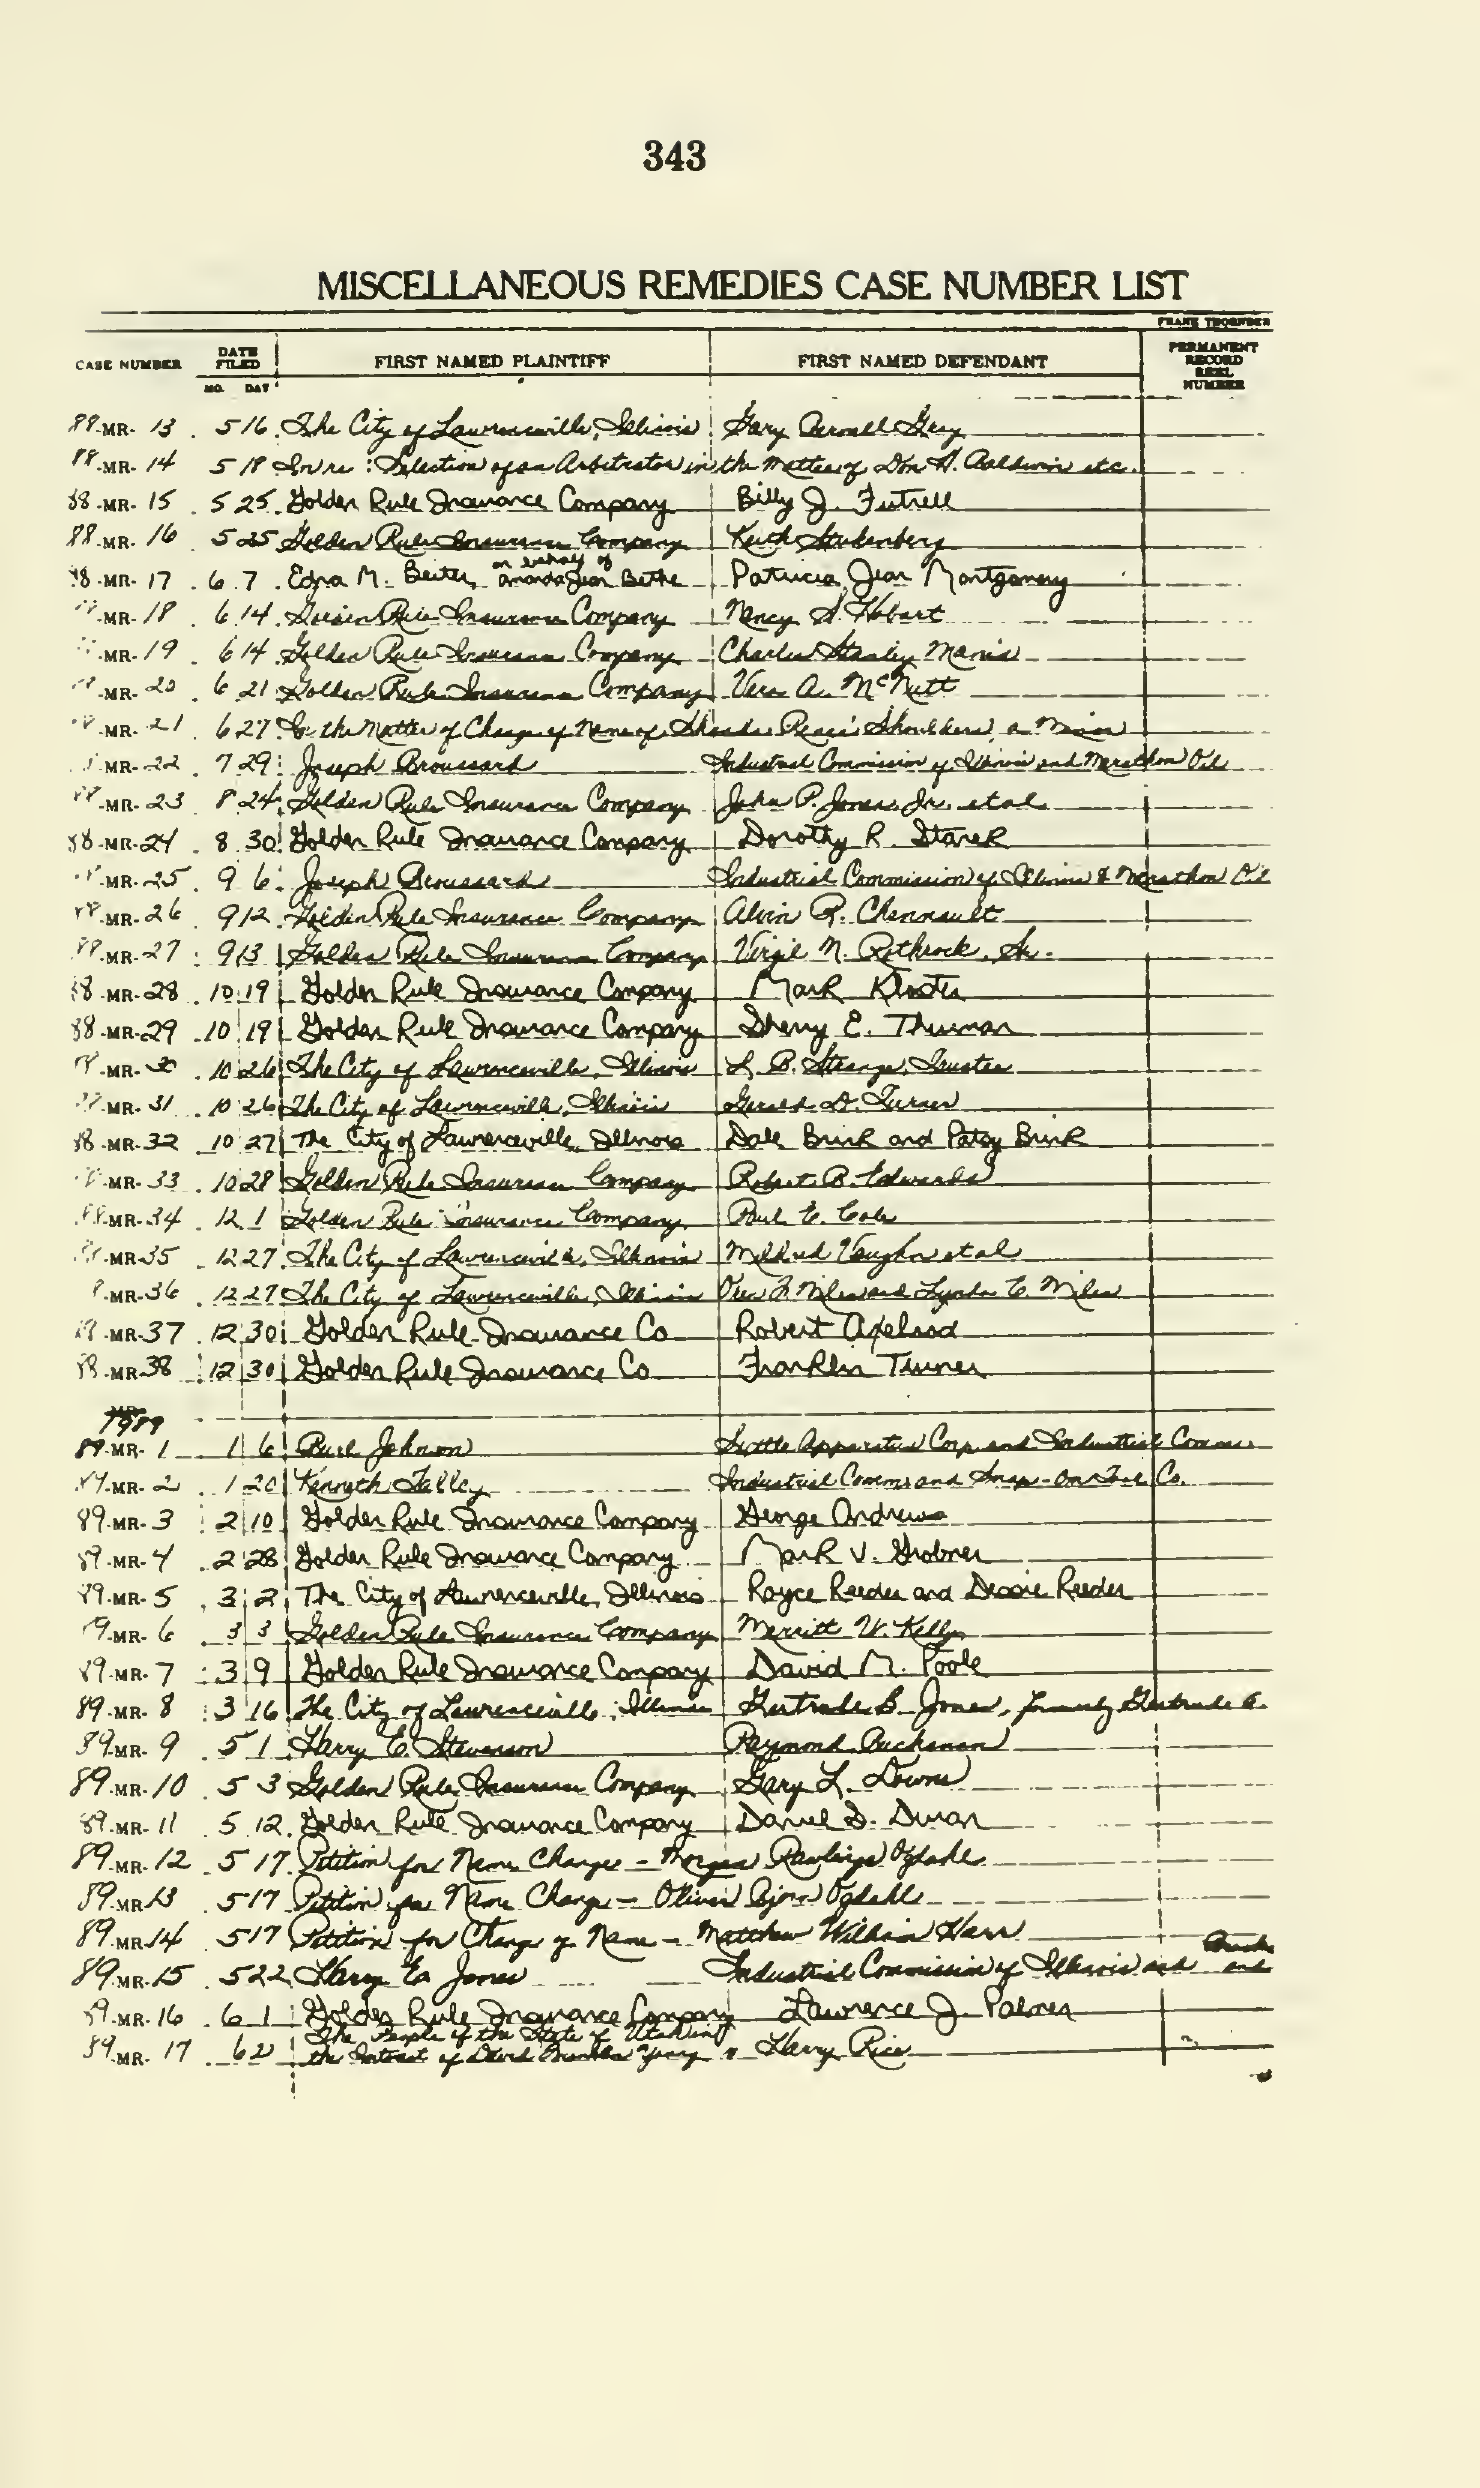 343
MISCELLANEOUS REMEDIES CASE NUMBER LIST
FRANK THORNBER
CASE NUMBER DATE FILED FIRST NAMED PLAINTIFF FIRST NAMED DEFENDANT PERMANENT RECORD REEL NUMBER
MO. DAY
88-MR-13 5 16 The City of Lawrenceville, Illinois Gary Gray
88-MR-14 5 18 In re: Selection of an Arbitrator in the Matter of Don H. Baldwin etc.
88-MR-15 5 25 Golden Rule Insurance Company Billy J. Futrell
88-MR-16 5 25 Golden Rule Insurance Company Keith Stukenberg
on behalf of
88-MR-17 6 7 Edna M. Beiter, Amanda Jean Bethe Patricia Jean Montgomery
88-MR-18 6 14 Golden Rule Insurance Company Nancy S. Hobart
-MR-19 6 14 Golden Rule Insurance Company Charles Stanley Manis
-MR-20 6 21 Golden Rule Insurance Company Vera A. McNutt
-MR-21 6 27 In the Matter of Change of Name of Renee Shoulders, a Minor
-MR-22 7 29 Joseph Broussard Industrial Commission of Illinois and Marathon Oil
88-MR-23 8 24 Golden Rule Insurance Company John P. Jones, Jr. et al
88-MR-24 8 30 Golden Rule Insurance Company Dorothy R. Starek
-MR-25 9 6 Joseph Broussard Industrial Commission of Illinois & Marathon Oil
88-MR-26 9 12 Golden Rule Insurance Company Alvin R. Chennault
88-MR-27 9 13 Golden Rule Insurance Company Virgil N. Rothrock, Sr.
88-MR-28 10 19 Golden Rule Insurance Company Mark Kloster
88-MR-29 10 19 Golden Rule Insurance Company Sherry E. Thurman
88-MR-30 10 26 The City of Lawrenceville, Illinois L. B. Strange, Trustee
88-MR-31 10 26 The City of Lawrenceville, Illinois Gerald D. Turner
88-MR-32 10 27 The City of Lawrenceville, Illinois Dale Brink and Patsy Brink
-MR-33 10 28 Golden Rule Insurance Company Robert B. Edwards
88-MR-34 12 1 Golden Rule Insurance Company Paul E. Cole
88-MR-35 12 27 The City of Lawrenceville, Illinois Mildred Vaughn et al
8-MR-36 12 27 The City of Lawrenceville, Illinois F. Miles and Lynda E. Miles
88-MR-37 12 30 Golden Rule Insurance Co Robert Axelrod
88-MR-38 12 30 Golden Rule Insurance Co Franklin Turner
1989
89-MR-1 1 6 Burl Johnson Tuttle Apparatus Corp. and Industrial Comm.
89-MR-2 1 20 Kenneth Talley Industrial Comm. and Snap-On Tool Co.
89-MR-3 2 10 Golden Rule Insurance Company George Andrews
89-MR-4 2 28 Golden Rule Insurance Company Mark V. Grobner
89-MR-5 3 2 The City of Lawrenceville, Illinois Royce Reeder and Dessie Reeder
89-MR-6 3 3 Golden Rule Insurance Company Merritt W. Kelly
89-MR-7 3 9 Golden Rule Insurance Company David M. Poole
89-MR-8 3 16 The City of Lawrenceville, Illinois Gertrude B. Jones, formerly Gertrude A.
89-MR-9 5 1 Harry E. Stevenson Raymond Buchanan
89-MR-10 5 3 Golden Rule Insurance Company Gary L. Downs
89-MR-11 5 12 Golden Rule Insurance Company Daniel D. Duran
89-MR-12 5 17 Petition for Name Change - Morgan Rawlings Ogdahl
89-MR-13 5 17 Petition for Name Change - Oliver Bjorn Ogdahl
89-MR-14 5 17 Petition for Change of Name - Matthew William Harr
89-MR-15 5 22 Harry E. Jones Industrial Commission of Illinois and
89-MR-16 6 1 Golden Rule Insurance Company Lawrence J. Palmer
The People of the State of Utah in
89-MR-17 6 2 the Interest of David Young v Harry Rice